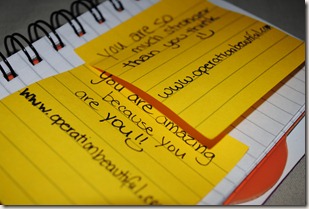 you are so
much stronger
than you think
www.operationbeautiful.com
you are amazing
because you
are you!!
www.operationbeautiful.com